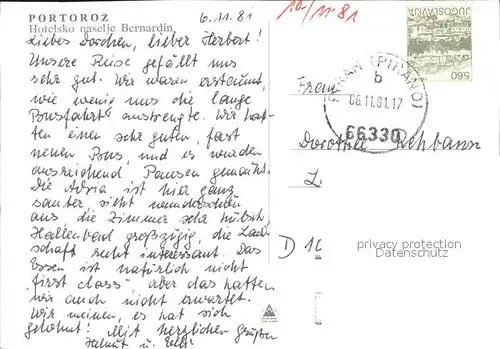 PORTOROŽ
Hotelsko naselje Bernardin
6.11.81
10/11.81
Liebes Dorchen, lieber Herbert!
Unsere Reise gefällt uns
sehr gut. Wir waren erstaunt,
wie wenig uns die lange
Busfahrt anstrengte. Wir hat-
ten einen sehr guten, fast
neuen Bus, und es wurden
ausreichend Pausen gemacht.
Die Adria ist hier ganz
sauber, sieht wunderschön
aus, die Zimmer sehr hübsch,
Hallenbad großzügig, die Land-
schaft recht interessant. Das
Essen ist natürlich nicht
"first class", aber das hatten
wir auch nicht erwartet.
Wir meinen, es hat sich
gelohnt! Mit herzlichen Grüßen
Helmut u.
JUGOSLAVIJA
5.60
PIRAN (PIRANO)
b
06.11.81.17
66330
Frau
Dorothea Rehbann
L
D 10
privacy protection
Datenschutz